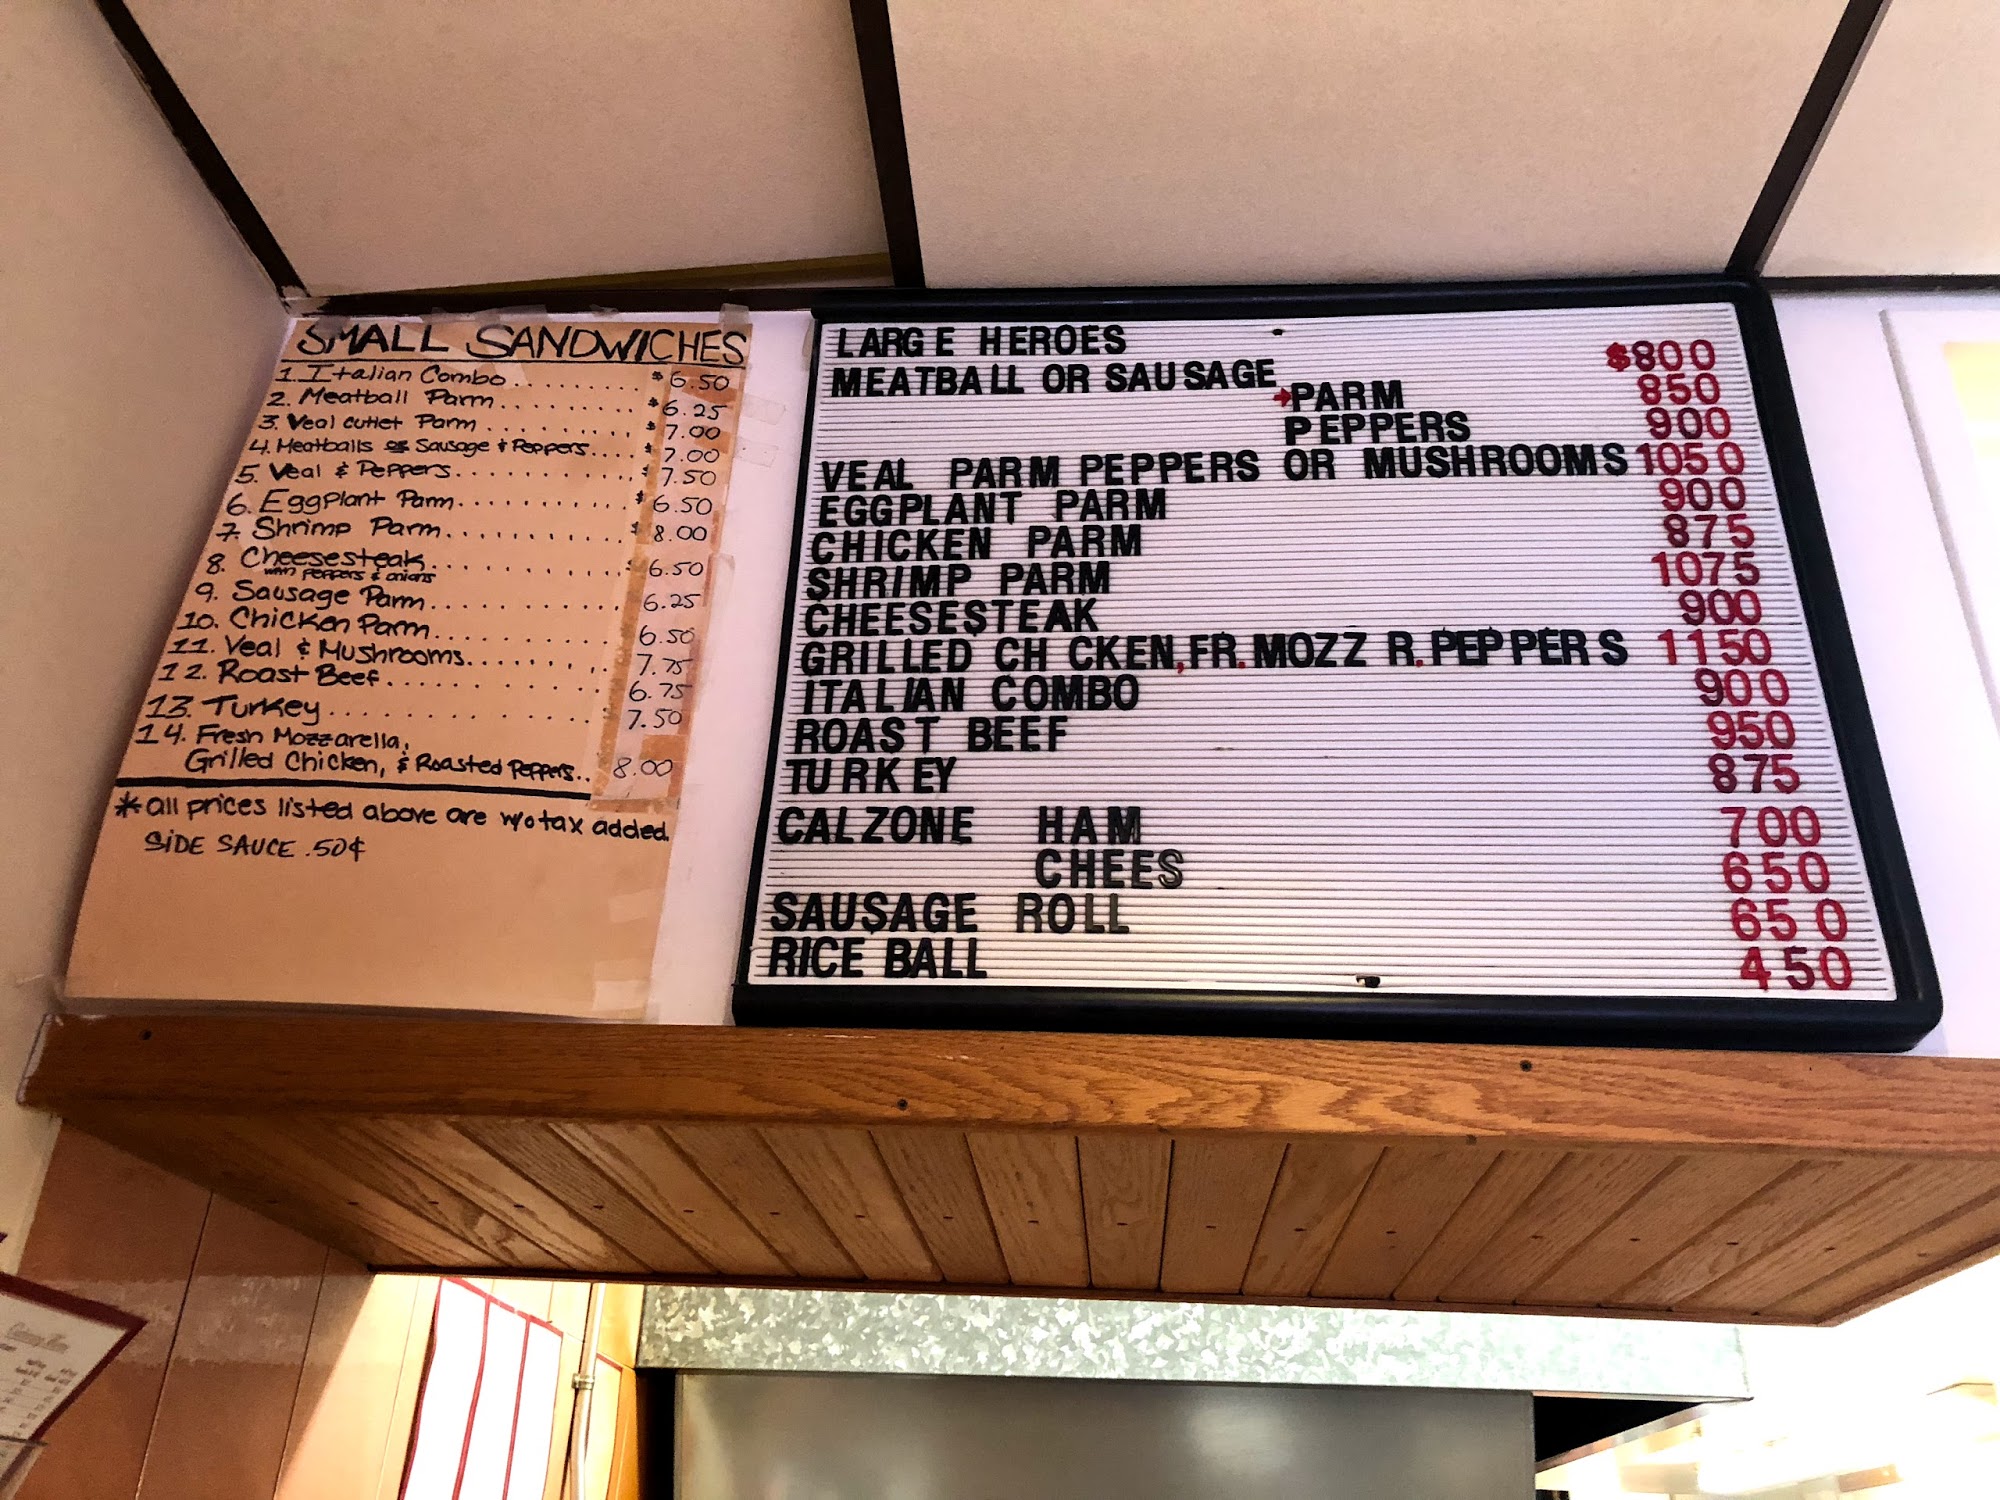 SMALL SANDWICHES
1. Italian Combo......... $6.50
2. Meatball Parm......... $6.25
3. Veal cutlet Parm......... $7.00
4. Meatballs or Sausage & Peppers.... $7.00
5. Veal & Peppers.......... $7.50
6. Eggplant Parm.......... $6.50
7. Shrimp Parm........... $8.00
8. Cheesesteak........... $6.50
with peppers & onions
9. Sausage Parm........... 6.25
10. Chicken Parm........... 6.50
11. Veal & Mushrooms........ 7.75
12. Roast Beef............ 6.75
13. Turkey.............. 7.50
14. Fresh Mozzarella,
Grilled Chicken, & Roasted Peppers.. 8.00
* all prices listed above are w/o tax added.
SIDE SAUCE .50¢
LARGE HEROES
MEATBALL OR SAUSAGE $800
PARM 850
PEPPERS 900
VEAL PARM PEPPERS OR MUSHROOMS 1050
EGGPLANT PARM 900
CHICKEN PARM 875
SHRIMP PARM 1075
CHEESESTEAK 900
GRILLED CH CKEN, FR. MOZZ R. PEPPERS 1150
ITALIAN COMBO 900
ROAST BEEF 950
TURKEY 875
CALZONE HAM 700
CHEES 650
SAUSAGE ROLL 650
RICE BALL 450